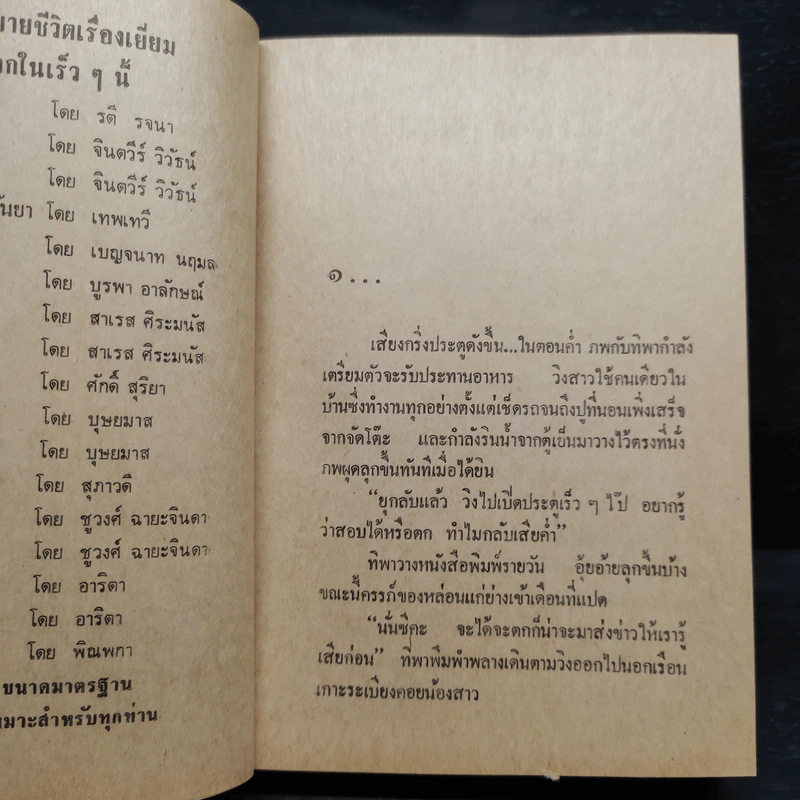 ยายชีวิตเรื่องเยี่ยม
กในเร็ว ๆ นี้
โดย รตี รจนา
โดย จินตวีร์ วิวัธน์
โดย จินตวีร์ วิวัธน์
ันยา โดย เทพเทวี
โดย เบญจนาท นฤมล
โดย บูรพา อาลักษณ์
โดย สาเรส ศิระมนัส
โดย สาเรส ศิระมนัส
โดย ศักดิ์ สุริยา
โดย บุษยมาส
โดย บุษยมาส
โดย สุภาวดี
โดย ชูวงศ์ ฉายะจินดา
โดย ชูวงศ์ ฉายะจินดา
โดย อาริตา
โดย อาริตา
โดย พิณพกา
ขนาดมาตรฐาน
หมาะสำหรับทุกท่าน
๑...
เสียงกริ่งประตูดังขึ้น...ในตอนค่ำ ภพกับทิพากำลัง
เตรียมตัวจะรับประทานอาหาร วิงสาวใช้คนเดียวใน
บ้านซึ่งทำงานทุกอย่างตั้งแต่เช็ดรถจนถึงปูที่นอนเพิ่งเสร็จ
จากจัดโต๊ะ และกำลังรินน้ำจากตู้เย็นมาวางไว้ตรงที่นั่ง
ภพผุดลุกขึ้นทันทีเมื่อได้ยิน
“ยุกลับแล้ว วิงไปเปิดประตูเร็ว ๆ ไป๊ อยากรู้
ว่าสอบได้หรือตก ทำไมกลับเสียค่ำ”
ทิพาวางหนังสือพิมพ์รายวัน อุ้ยอ้ายลุกขึ้นบ้าง
ขณะนี้ครรภ์ของหล่อนแก่ย่างเข้าเดือนที่แปด
“นั่นซีคะ จะได้จะตกก็น่าจะมาส่งข่าวให้เรารู้
เสียก่อน” ทิพาพึมพำพลางเดินตามวิงออกไปนอกเรือน
เกาะระเบียงคอยน้องสาว